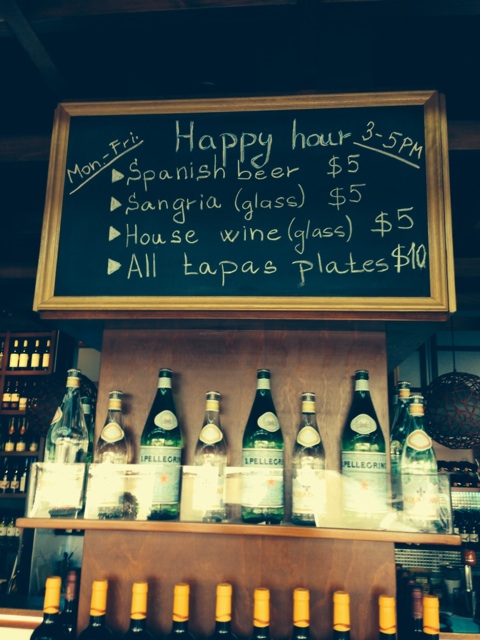 Mon.-Fri. Happy hour 3-5PM
Spanish beer $5
Sangria (glass) $5
House wine (glass) $5
All tapas plates $10
S.PELLEGRINO
S.PELLEGRINO
S.PELLEGRINO